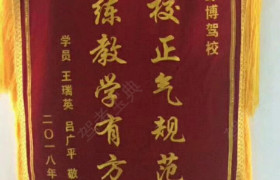 博驾校
校正气规范
练教学有方
学员 王瑞英 吕广平 敬
二〇一八年